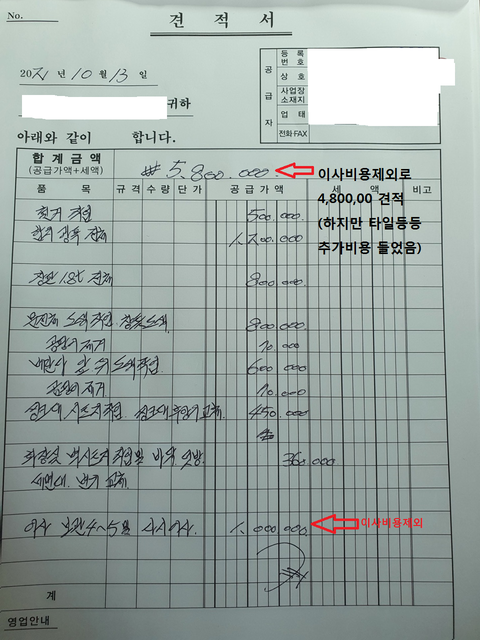 No.
견 적 서
20 년 10 월 13 일
귀하
아래와 같이 합니다.
공 급 자
등록 번호
상 호
사업장 소재지
업 태
전화 FAX
합 계 금 액
(공급가액+세액)
₩ 5,800,000
이사비용제외로
4,800,00 견적
(하지만 타일등등
추가비용 들었음)
품 목 규 격 수 량 단 가 공 급 가 액 세 액 비 고
철거 작업 500.000
합지 광폭 전체 1.200.000
장판 1.8t 전체 800.000
도색작업 800.000
곰팡이 제거 70.000
베란다 앞 뒤 도색작업 600 000
곰팡이 제거 70.000
싱크대 시트지작업 싱크대 후앙기 교체 450.000
화장실 작업및 바닥 360.000
세면대 변기 교체
이사 보관 4~5일 이사 1.000.000
이사비용제외
계
영업안내